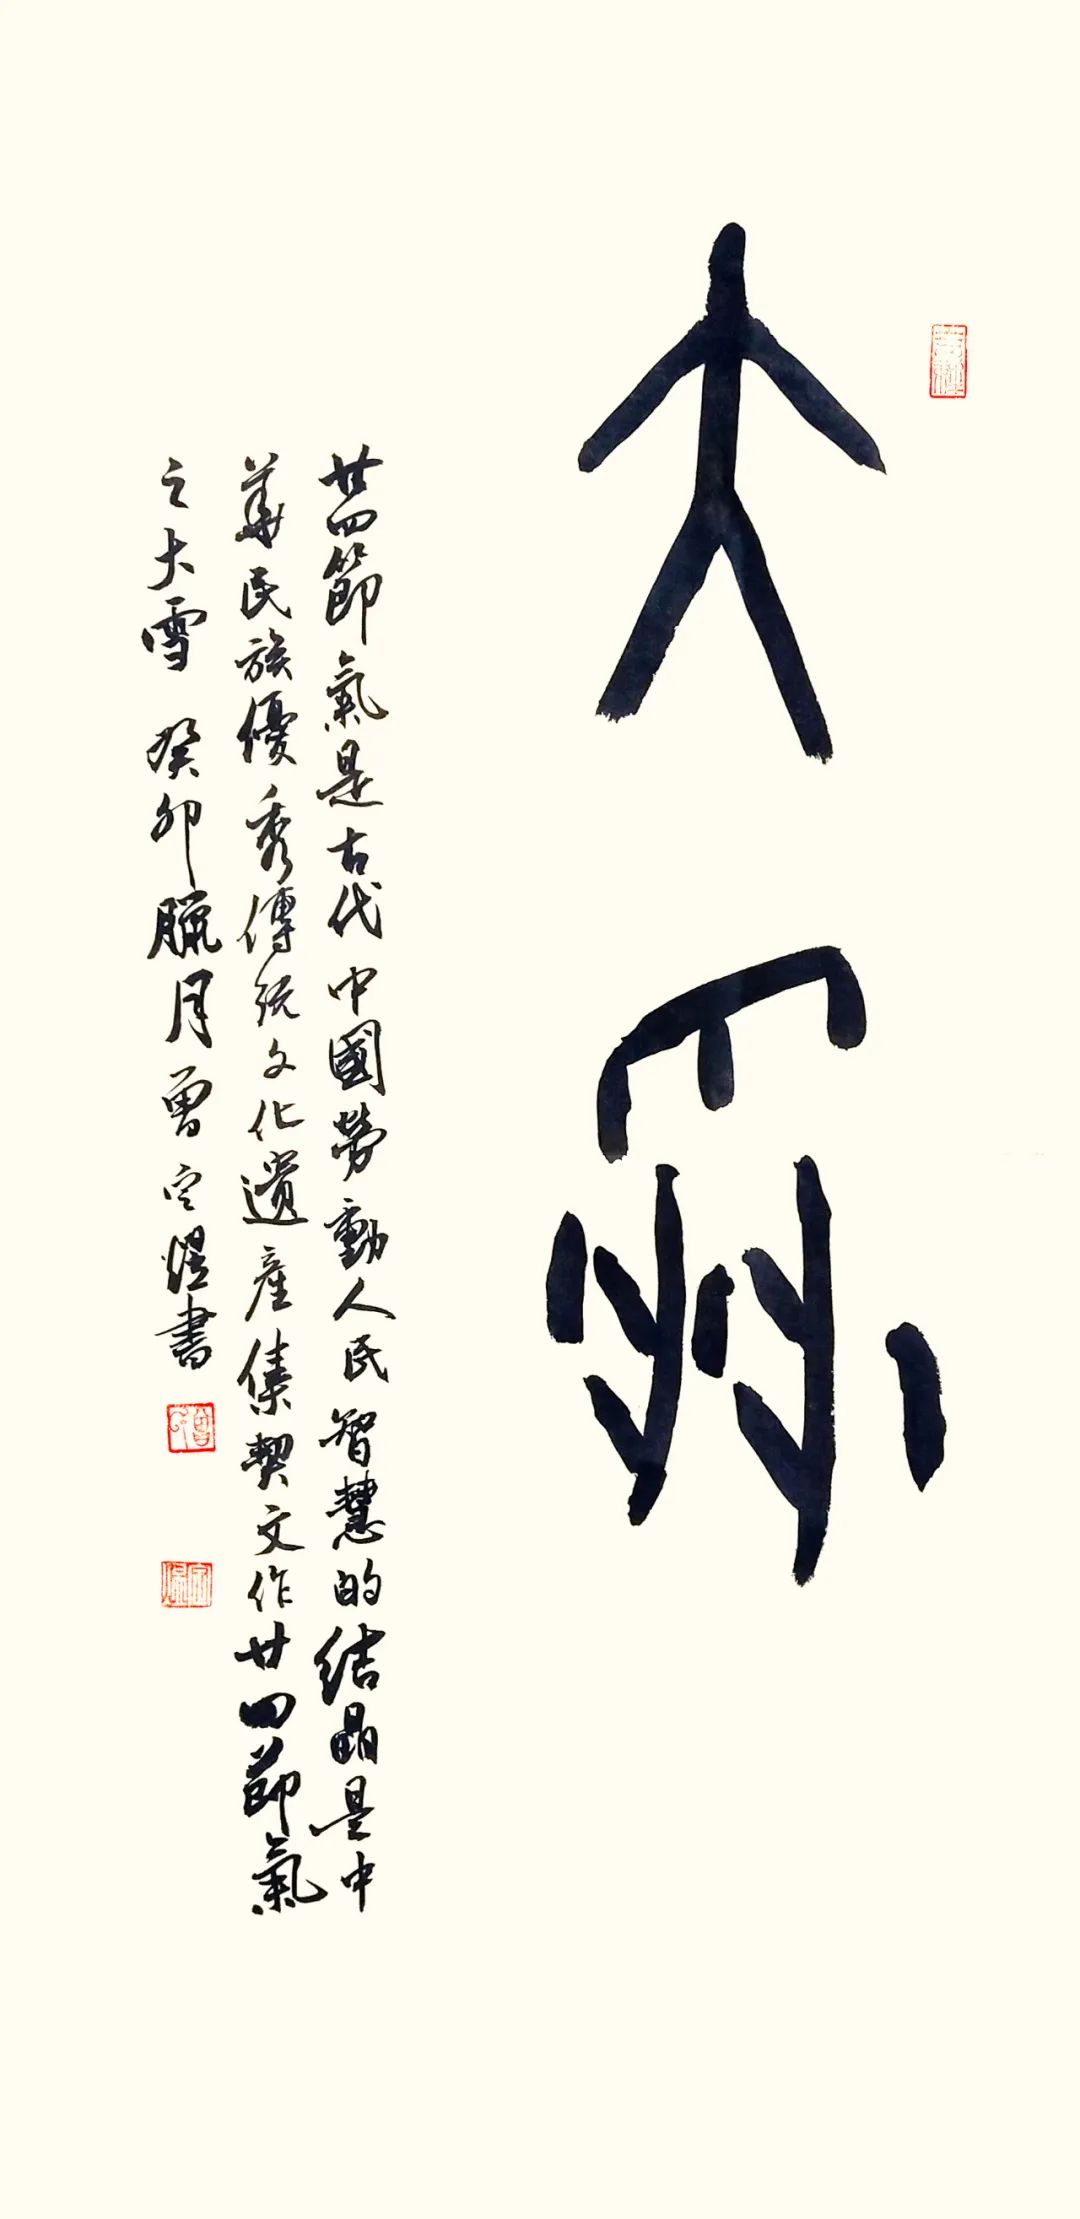 大雪
廿四節氣是古代中國勞動人民智慧的结晶是中
華民族優秀傳统文化遺產集契文作廿四節氣
之大雪 癸卯臘月曾宪煜書